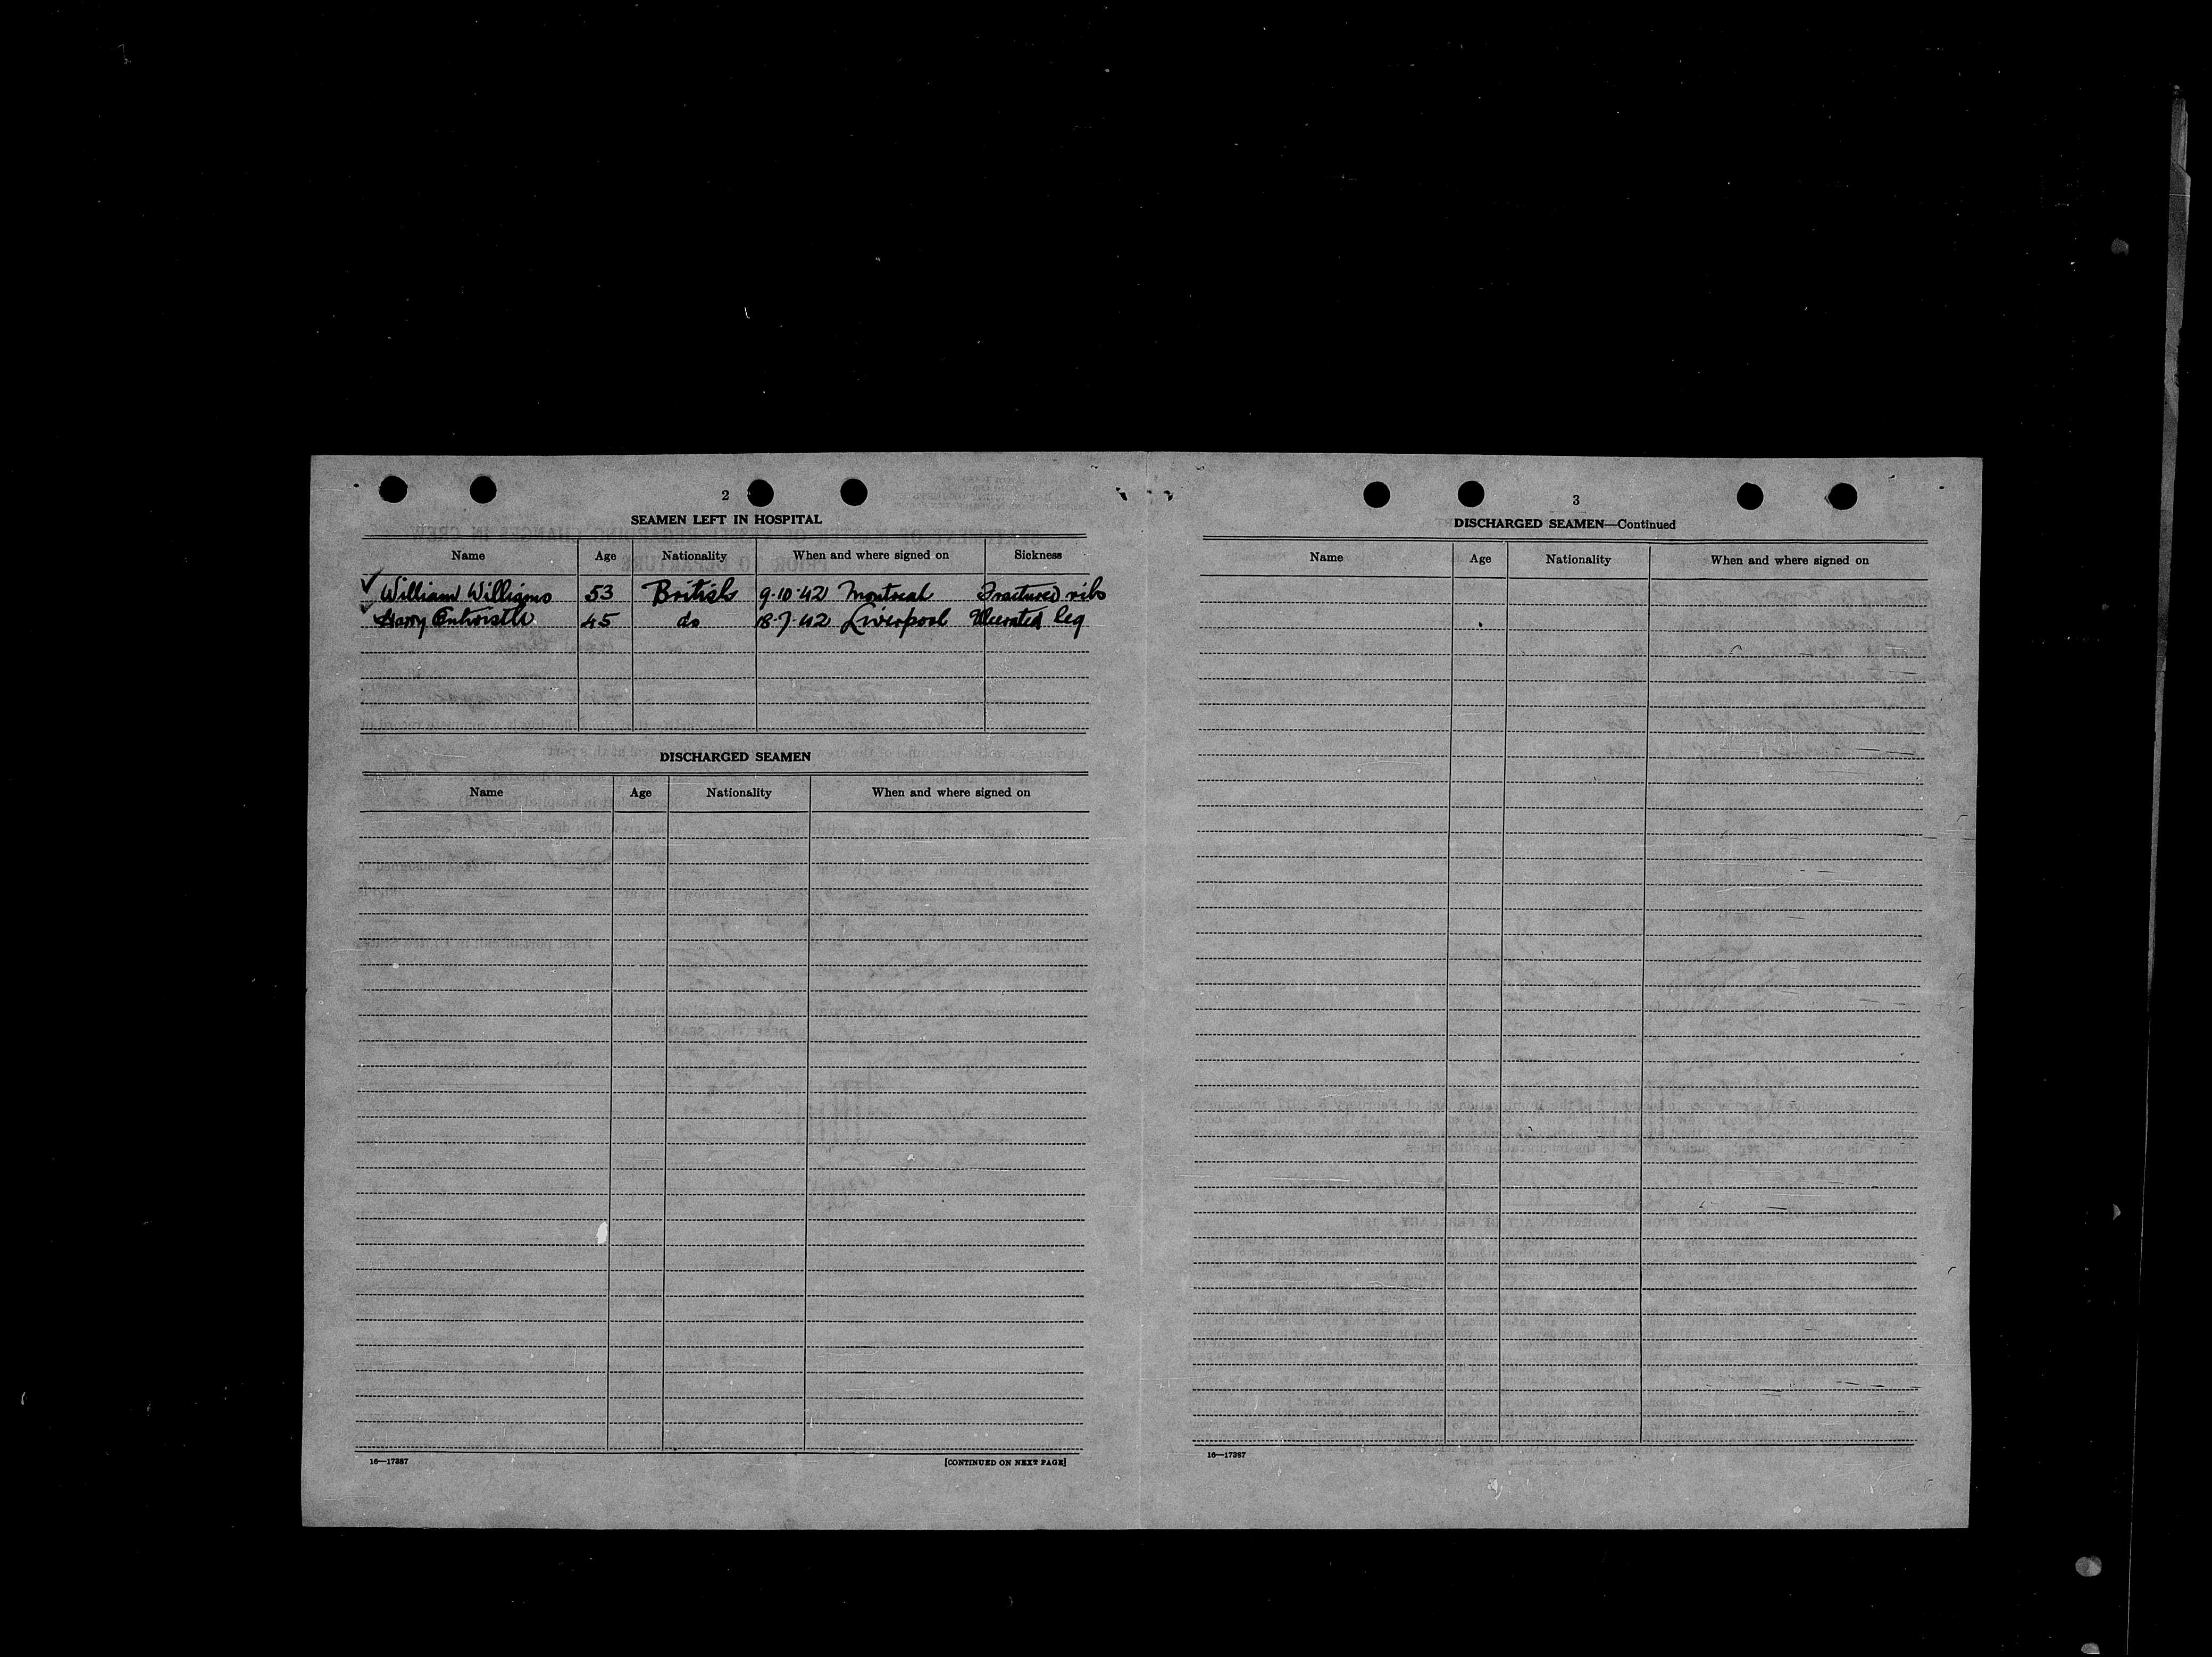 2
SEAMEN LEFT IN HOSPITAL
Name Age Nationality When and where signed on Sickness
✓ William Williams 53 British 9-10-42 Montreal Fractured ribs
✓ Harry Entwistle 45 do 18-7-42 Liverpool Ulcerated leg
DISCHARGED SEAMEN
Name Age Nationality When and where signed on
16—17387 [CONTINUED ON NEXT PAGE]
3
DISCHARGED SEAMEN—Continued
Name Age Nationality When and where signed on
16—17387